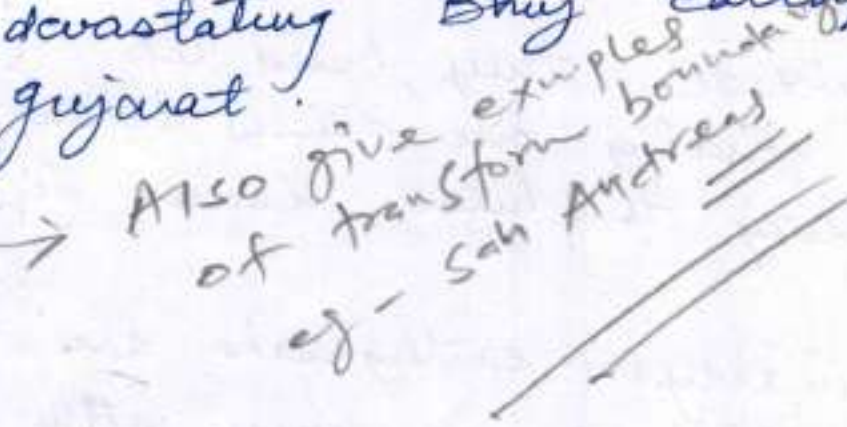 devastating Bhuj
Gujarat.
→ Also give examples
of transform boundary
eg - San Andreas